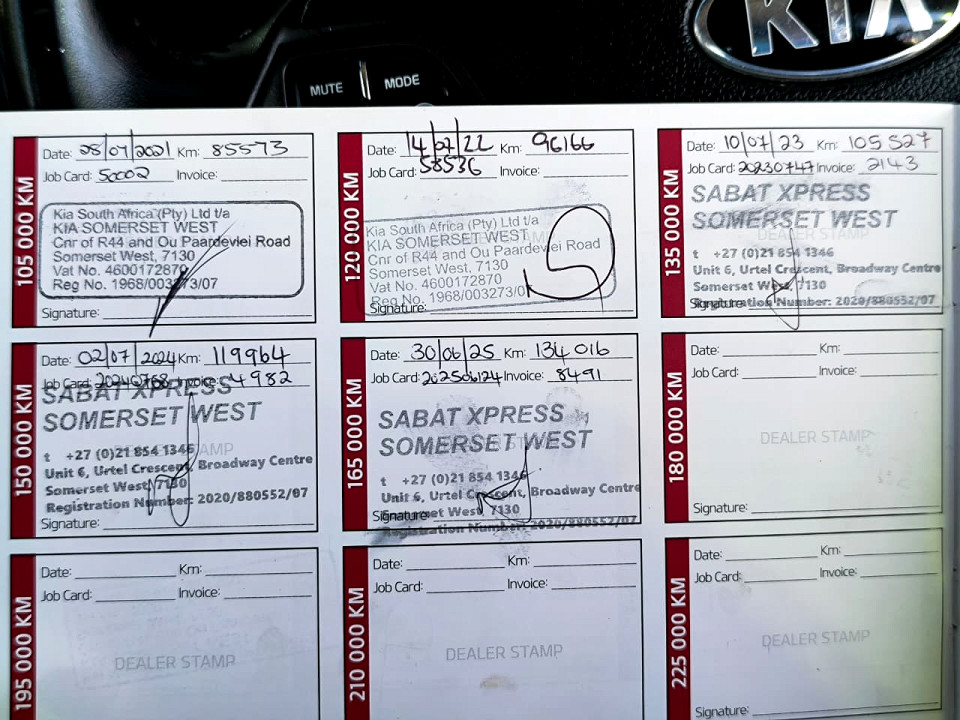 KIA
MUTE MODE
105 000 KM
Date: 28/07/2021 Km: 85573
Job Card: 50002 Invoice:
Kia South Africa (Pty) Ltd t/a
KIA SOMERSET WEST
Cnr of R44 and Ou Paardevlei Road
Somerset West, 7130
Vat No. 4600172870
Reg No. 1968/003273/07
Signature:
120 000 KM
Date: 14/07/22 Km: 96166
Job Card: 58536 Invoice:
Kia South Africa (Pty) Ltd t/a
KIA SOMERSET WEST
Cnr of R44 and Ou Paardevlei Road
Somerset West, 7130
Vat No. 4600172870
Reg No. 1968/003273/0
Signature:
135 000 KM
Date: 10/07/23 Km: 105 527
Job Card: 20230747 Invoice: 2143
SABAT XPRESS
SOMERSET WEST
DEALER STAMP
t +27 (0)21 854 1346
Unit 6, Urtel Crescent, Broadway Centre
Somerset West, 7130
Signature: Registration Number: 2020/880552/07
150 000 KM
Date: 02/07/2024 Km: 119964
Job Card: 20240768 Invoice: 4982
SABAT XPRESS
SOMERSET WEST
DEALER STAMP
t +27 (0)21 854 1346
Unit 6, Urtel Crescent, Broadway Centre
Somerset West, 7130
Registration Number: 2020/880552/07
Signature:
165 000 KM
Date: 30/06/25 Km: 134 016
Job Card: 202506124 Invoice: 8491
SABAT XPRESS
SOMERSET WEST
t +27 (0)21 854 1346
Unit 6, Urtel Crescent, Broadway Centre
Signature: Somerset West, 7130
Registration Number: 2020/880552/07
180 000 KM
Date: Km:
Job Card: Invoice:
DEALER STAMP
Signature:
195 000 KM
Date: Km:
Job Card: Invoice:
DEALER STAMP
210 000 KM
Date: Km:
Job Card: Invoice:
DEALER STAMP
225 000 KM
Date: Km:
Job Card: Invoice:
DEALER STAMP
Signature: